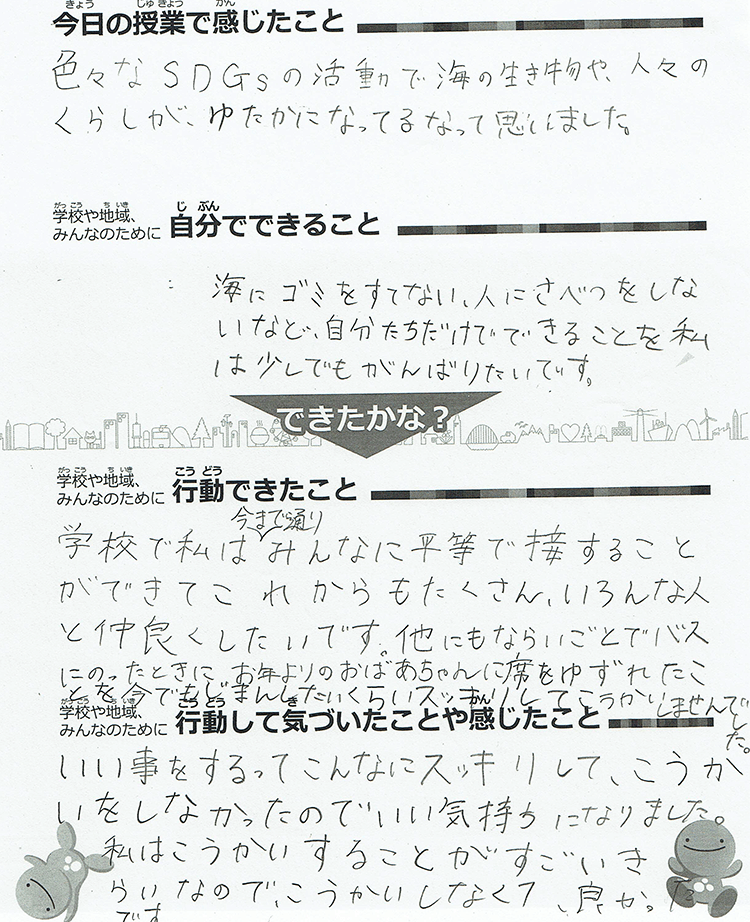 今日の授業で感じたこと
色々なSDGsの活動で海の生き物や、人々の
くらしが、ゆたかになってるなって思いました。
学校や地域、
みんなのために 自分でできること
海にゴミをすてない、人にさべつをしな
いなど、自分たちだけでできることを私
は少しでもがんばりたいです。
できたかな？
学校や地域、
みんなのために 行動できたこと
今まで通り
学校で私はみんなに平等で接すること
ができてこれからもたくさん、いろんな人
と仲良くしたいです。他にもならいごとでバス
にのったときに、お年よりのおばあちゃんに席をゆずれたこ
とを今でもじまんしたいくらいスッキリしてこうかいしませんで
した。
学校や地域、
みんなのために 行動して気づいたことや感じたこと
いい事をするってこんなにスッキリして、こうか
いをしなかったのでいい気持ちになりました。
私はこうかいすることがすごいき
らいなので、こうかいしなくて、良かった
です